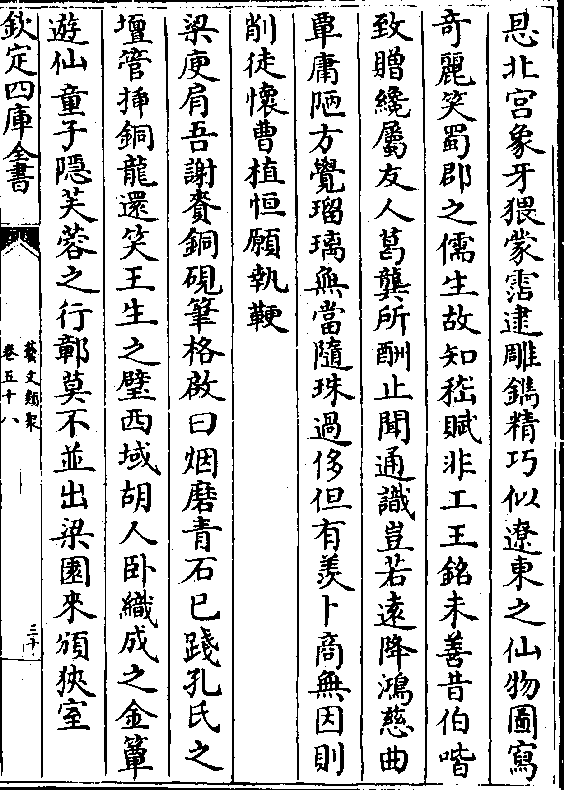 恩北宫象牙猥蒙霑逮雕鐫精巧似遼東之仙物圖寫
奇麗笑蜀郡之儒生故知嵇賦非工王銘未善昔伯喈
致贈纔屬友人葛龔所酬止聞通識豈若逺降鴻慈曲
覃庸陋方覺瑠璃無當隨珠過侈但有羨卜商無因則
削徒懷曹植恒願執鞭
梁庾肩吾謝賚銅硯筆格啟曰烟磨青石已踐孔氏之
壇管揷銅龍還笑王生之璧西域胡人卧織成之金簟
遊仙童子隱芙蓉之行鄣莫不並出梁園來頒狹室
欽定四庫全書
藝文類聚
卷五十八
三十